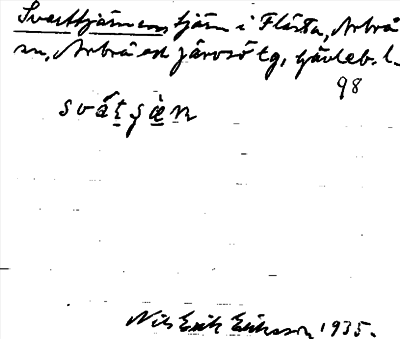 Svarttjärnen tjärn i Flästa, Arbrå
sn, Arbrå och Järvsö tg, Gävleb. l.
98
Nils Erik Eriksson 1935.